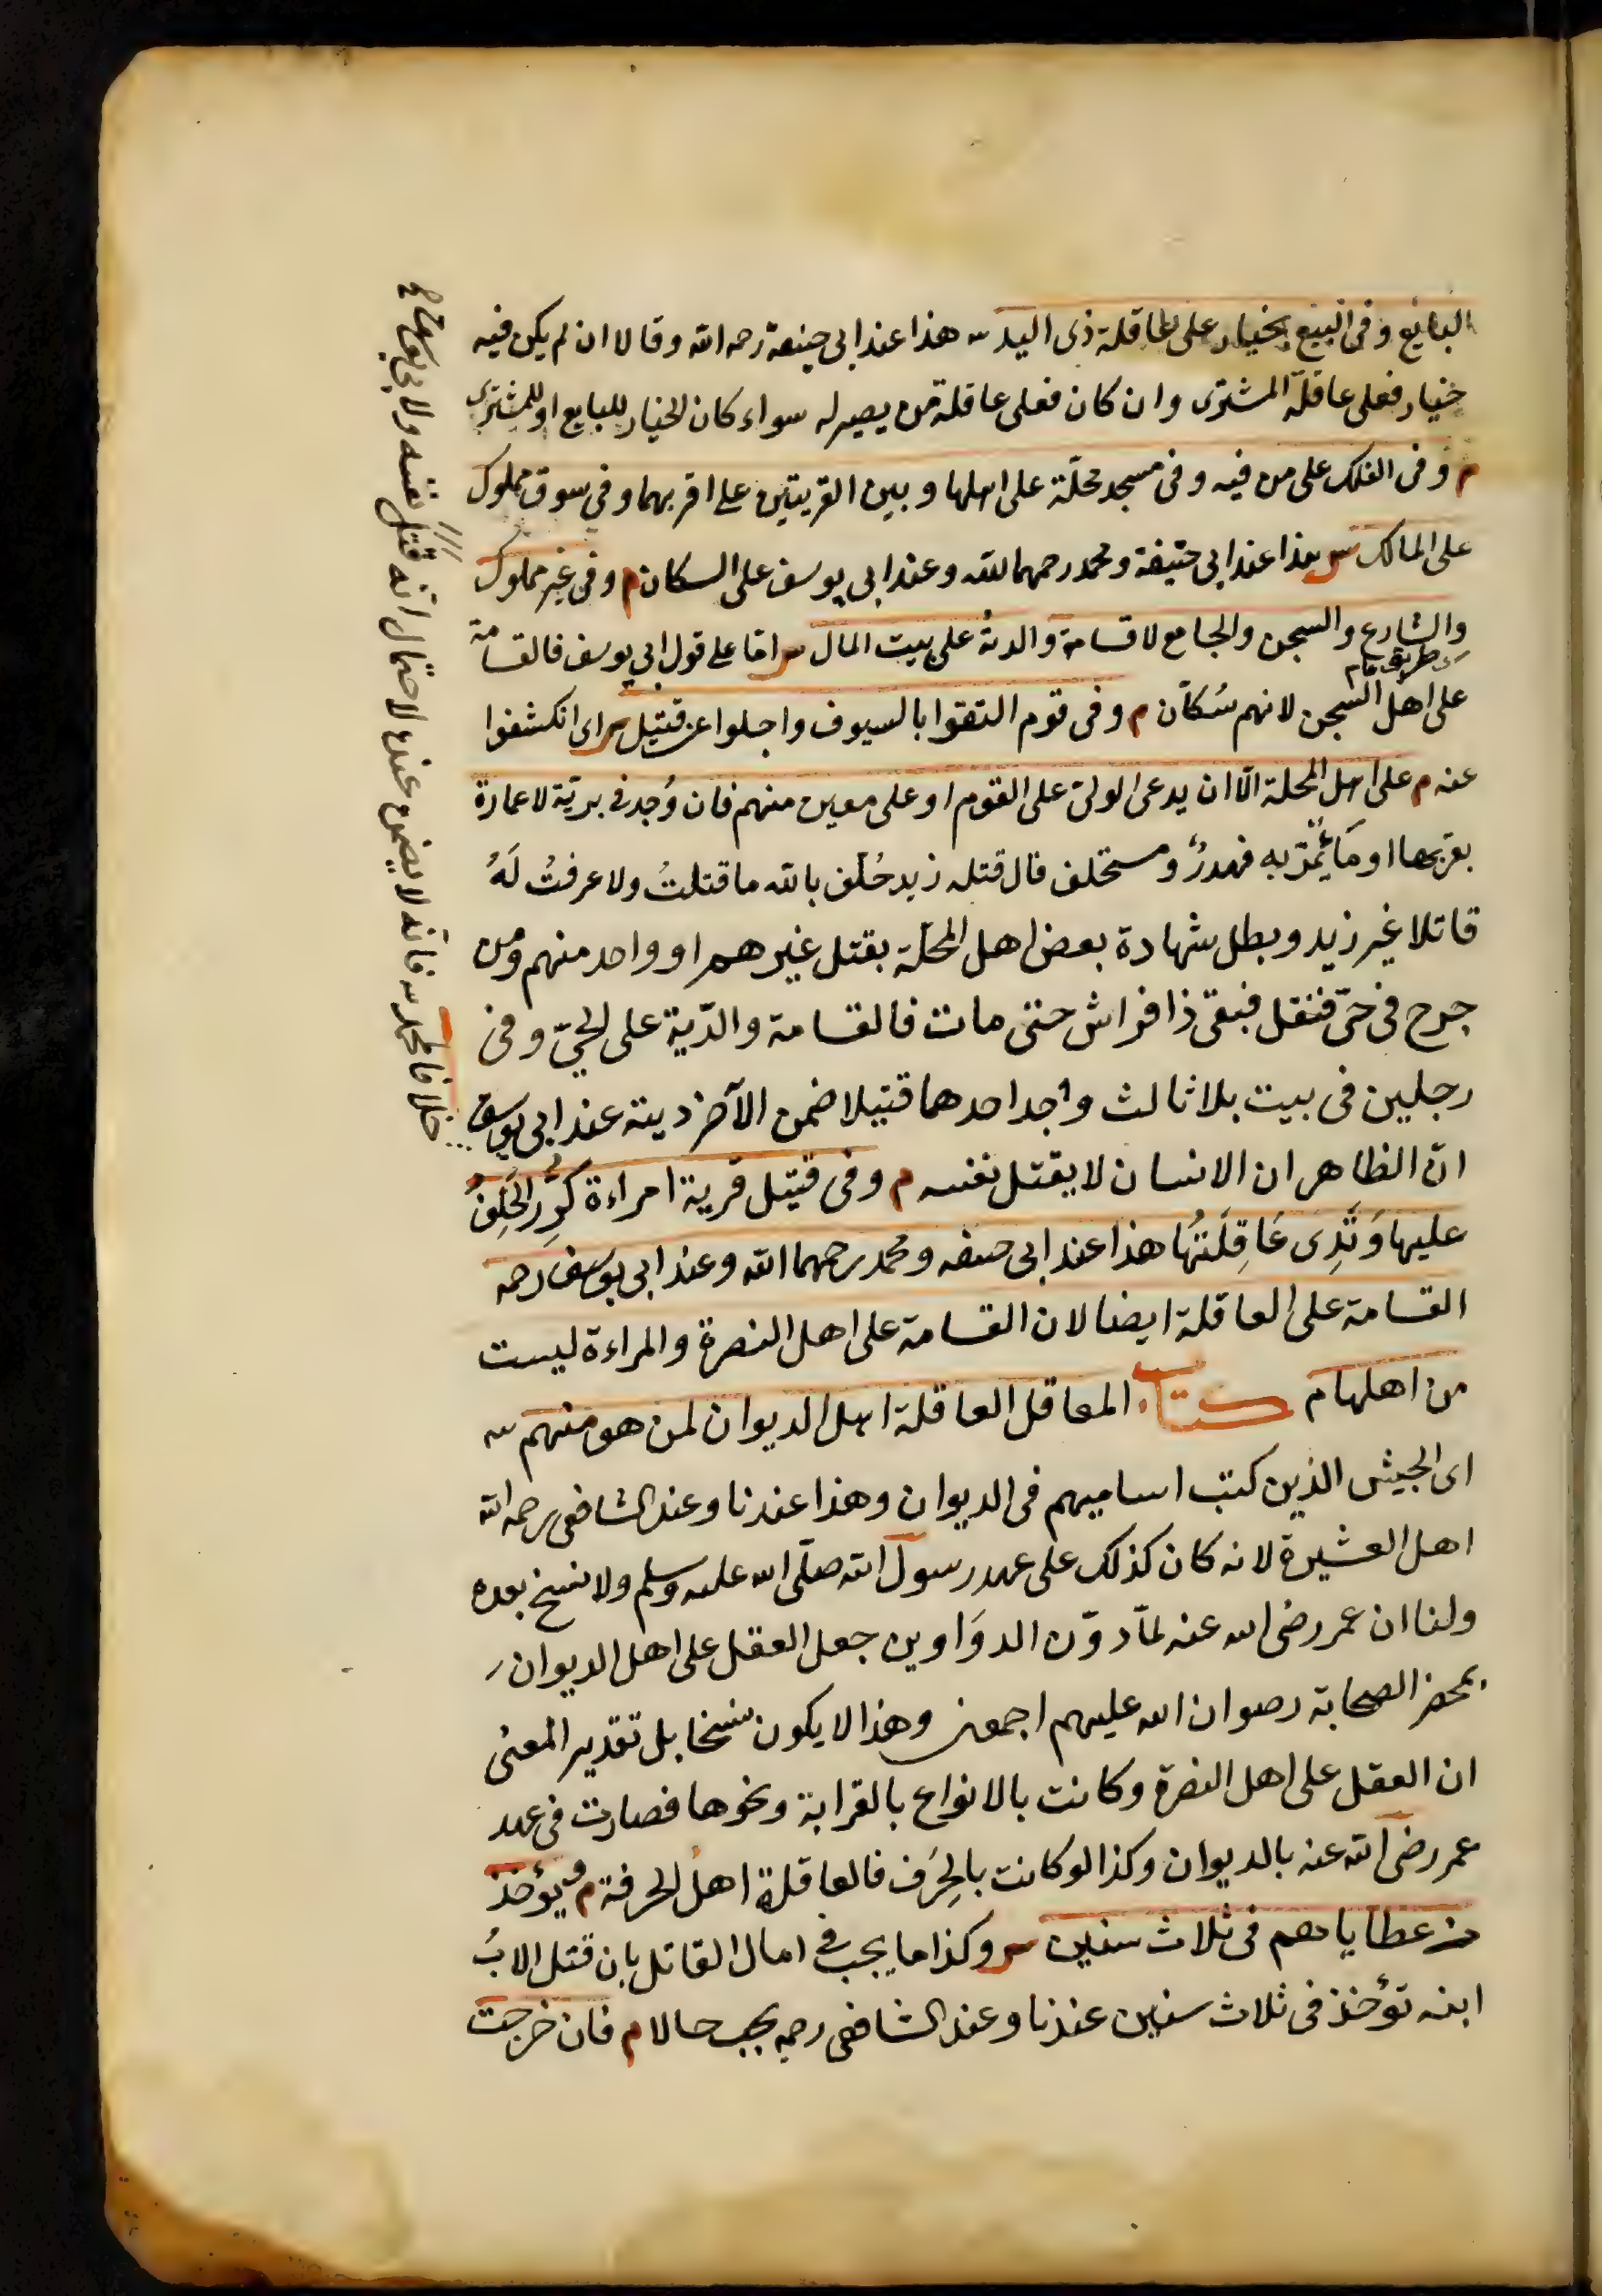 البايع وفى البيع بخيار على عاقلة ذى اليد س هذا عند ابى حنيفة رحمه الله وقالا ان لم يكن فيه
خيار فعلى عاقلة المشترى وان كان فعلى عاقلة من يصير له سواء كان الخيار للبايع او للمشترى
م وفى الفلك على من فيه وفى مسجد محلّة على اهلها وبين القريتين على اقربهما وفى سوق مملوك
على المالك س هذا عند ابى حنيفة ومحمد رحمهما الله وعند ابى يوسف على السكان م وفى غير مملوك
والشارع والسجن والجامع لا قسامة والدية على بيت المال س امّا على قول ابى يوسف فالقسامة
على اهل السجن لانهم سُكّان م وفى قوم التقوا بالسيوف واجلوا عن قتيل س اى انكشفوا
عنه م على اهل المحلة الّا ان يدعى الولىّ على القوم او على معين منهم فان وُجد فى بريّة لا عمارة
بقربها او مَاءٍ يمُرّ به فهدرٌ ومستحلف قال قتله زيد حُلّف بالله ما قتلتُ ولا عرفتُ لَهُ
قاتلا غير زيد وبطل شهادة بعض اهل المحلّة بقتل غيرهم او واحد منهم ومن
جرح فى حىّ فنقل فبقى ذا فراش حتى مات فالقسامة والدّية على الحىّ وفى
رجلين فى بيت بلا ثالث وُجد احدهما قتيلا ضمن الآخر ديته عند ابى يوسف
خلافا لمحمد س فانّه لا يضمن عنده لاحتمال انّه قتل نفسه ولابى يوسف
انّ الظاهر ان الانسان لا يقتل نفسه م وفى قتيل قرية امراءة كُرِّر الحَلِفُ
عليها وَتَدِى عَاقِلَتُهَا هذا عند ابى حنيفه ومحمد رحمهما الله وعند ابى يوسف رحمه
القسامة على العاقلة ايضا لان القسامة على اهل النصرة والمراءة ليست
من اهلها م كتاب المعاقل العاقلة اهل الديوان لمن هو منهم س
اى الجيش الذين كتب اساميهم فى الديوان وهذا عندنا وعند الشافعى رحمه الله
اهل العشيرة لانه كان كذلك على عهد رسول الله صلّى الله عليه وسلم ولا نسخ بعده
ولنا ان عمر رضى الله عنه لمّا دوّن الدوَاوين جعل العقل على اهل الديوان
بمحضر الصحابة رضوان الله عليهم اجمعين وهذا لا يكون نسخا بل تقدير المعنى
ان العقل على اهل النصرة وكانت بالانواع بالقرابة ونحوها فصارت فى عهد
عمر رضى الله عنه بالديوان وكذا لو كانت بالحِرَف فالعاقلة اهلُ الحرفة م ويُؤخذ
من عطاياهم فى ثلاث سنين س وكذا ما يجب فى مال القاتل بان قتل الابُ
ابنه تؤخذ فى ثلاث سنين عندنا وعند الشافعى رحمه يجب حالا م فان خرجت